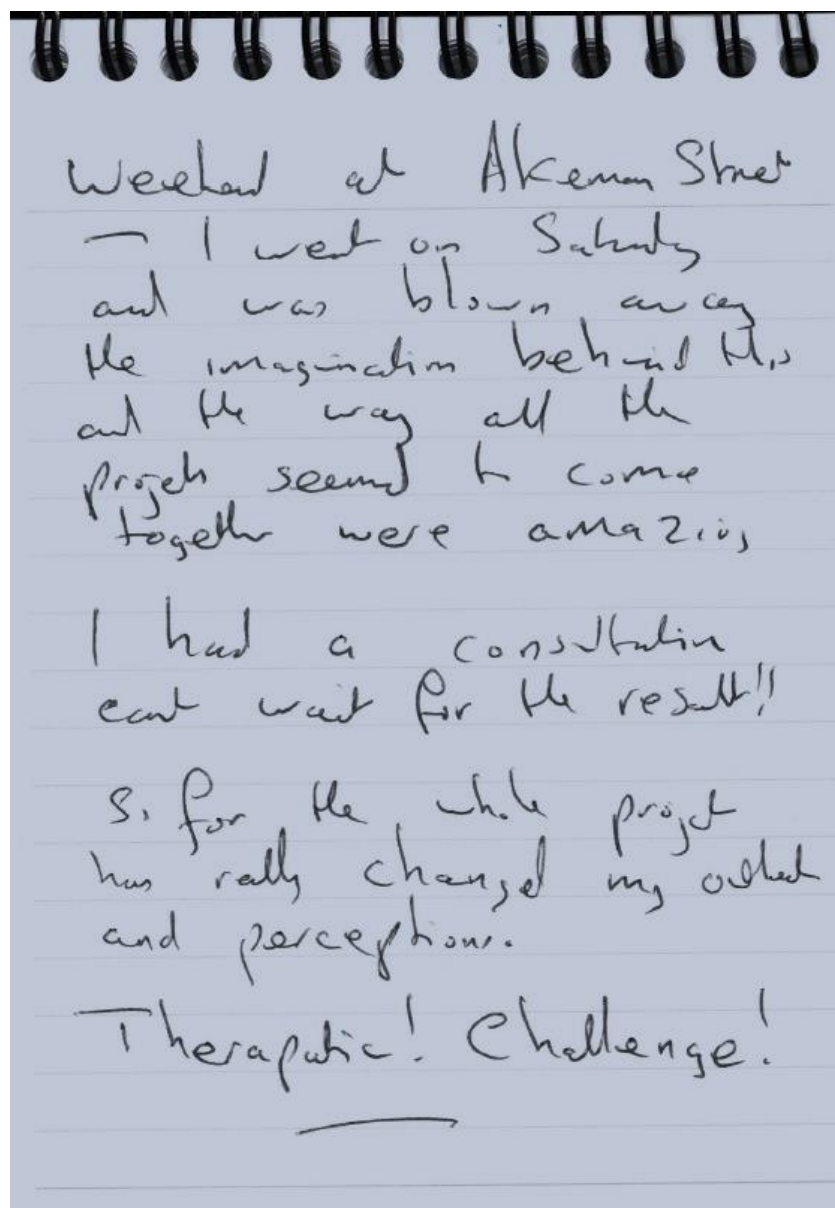 Weekend at Akeman Street
– I went on Saturday
and was blown away
the imagination behind this
and the way all the
projects seemed to come
together were amazing
I had a consultation
cant wait for the result!!
So far the whole project
has really changed my outlook
and perceptions.
Therapatic! Challenge!